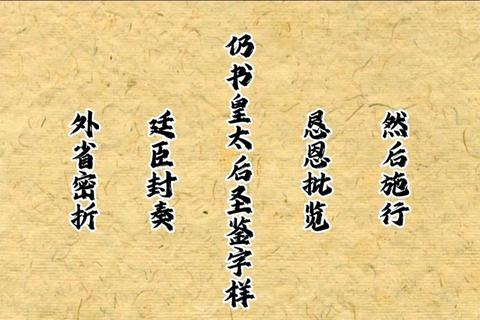 外省密折
廷臣封奏
仍书皇太后圣鉴字样
恳恩批览
然后施行